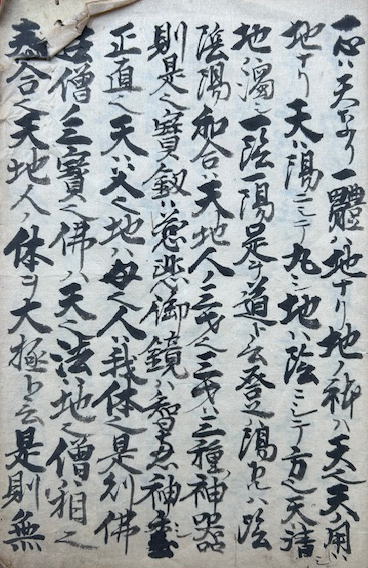 一心ハ天ナリ一體ハ地ナリ地ノ神ハ天之天ノ用ハ
地ナリ天ハ陽ニシテ丸シ地ハ陰ニシテ方也天清
地濁シ一陰一陽是ヲ道ト云登ハ陽ハ陰
陰陽和合ハ天地人ノ三才也三才ハ三種神器
則是也寳釼ハ慈悲御鏡ハ智恵神璽ハ
正直也天ハ父也地ハ母也人ハ我体也是則佛
僧三寳也佛ハ天也法ハ地也僧ハ也
合也天地人ノ体ヲ大極ト云是則無